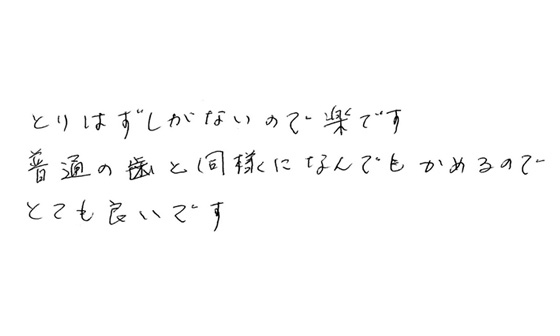 とりはずしがないので楽です
普通の歯と同様になんでもかめるので
とても良いです